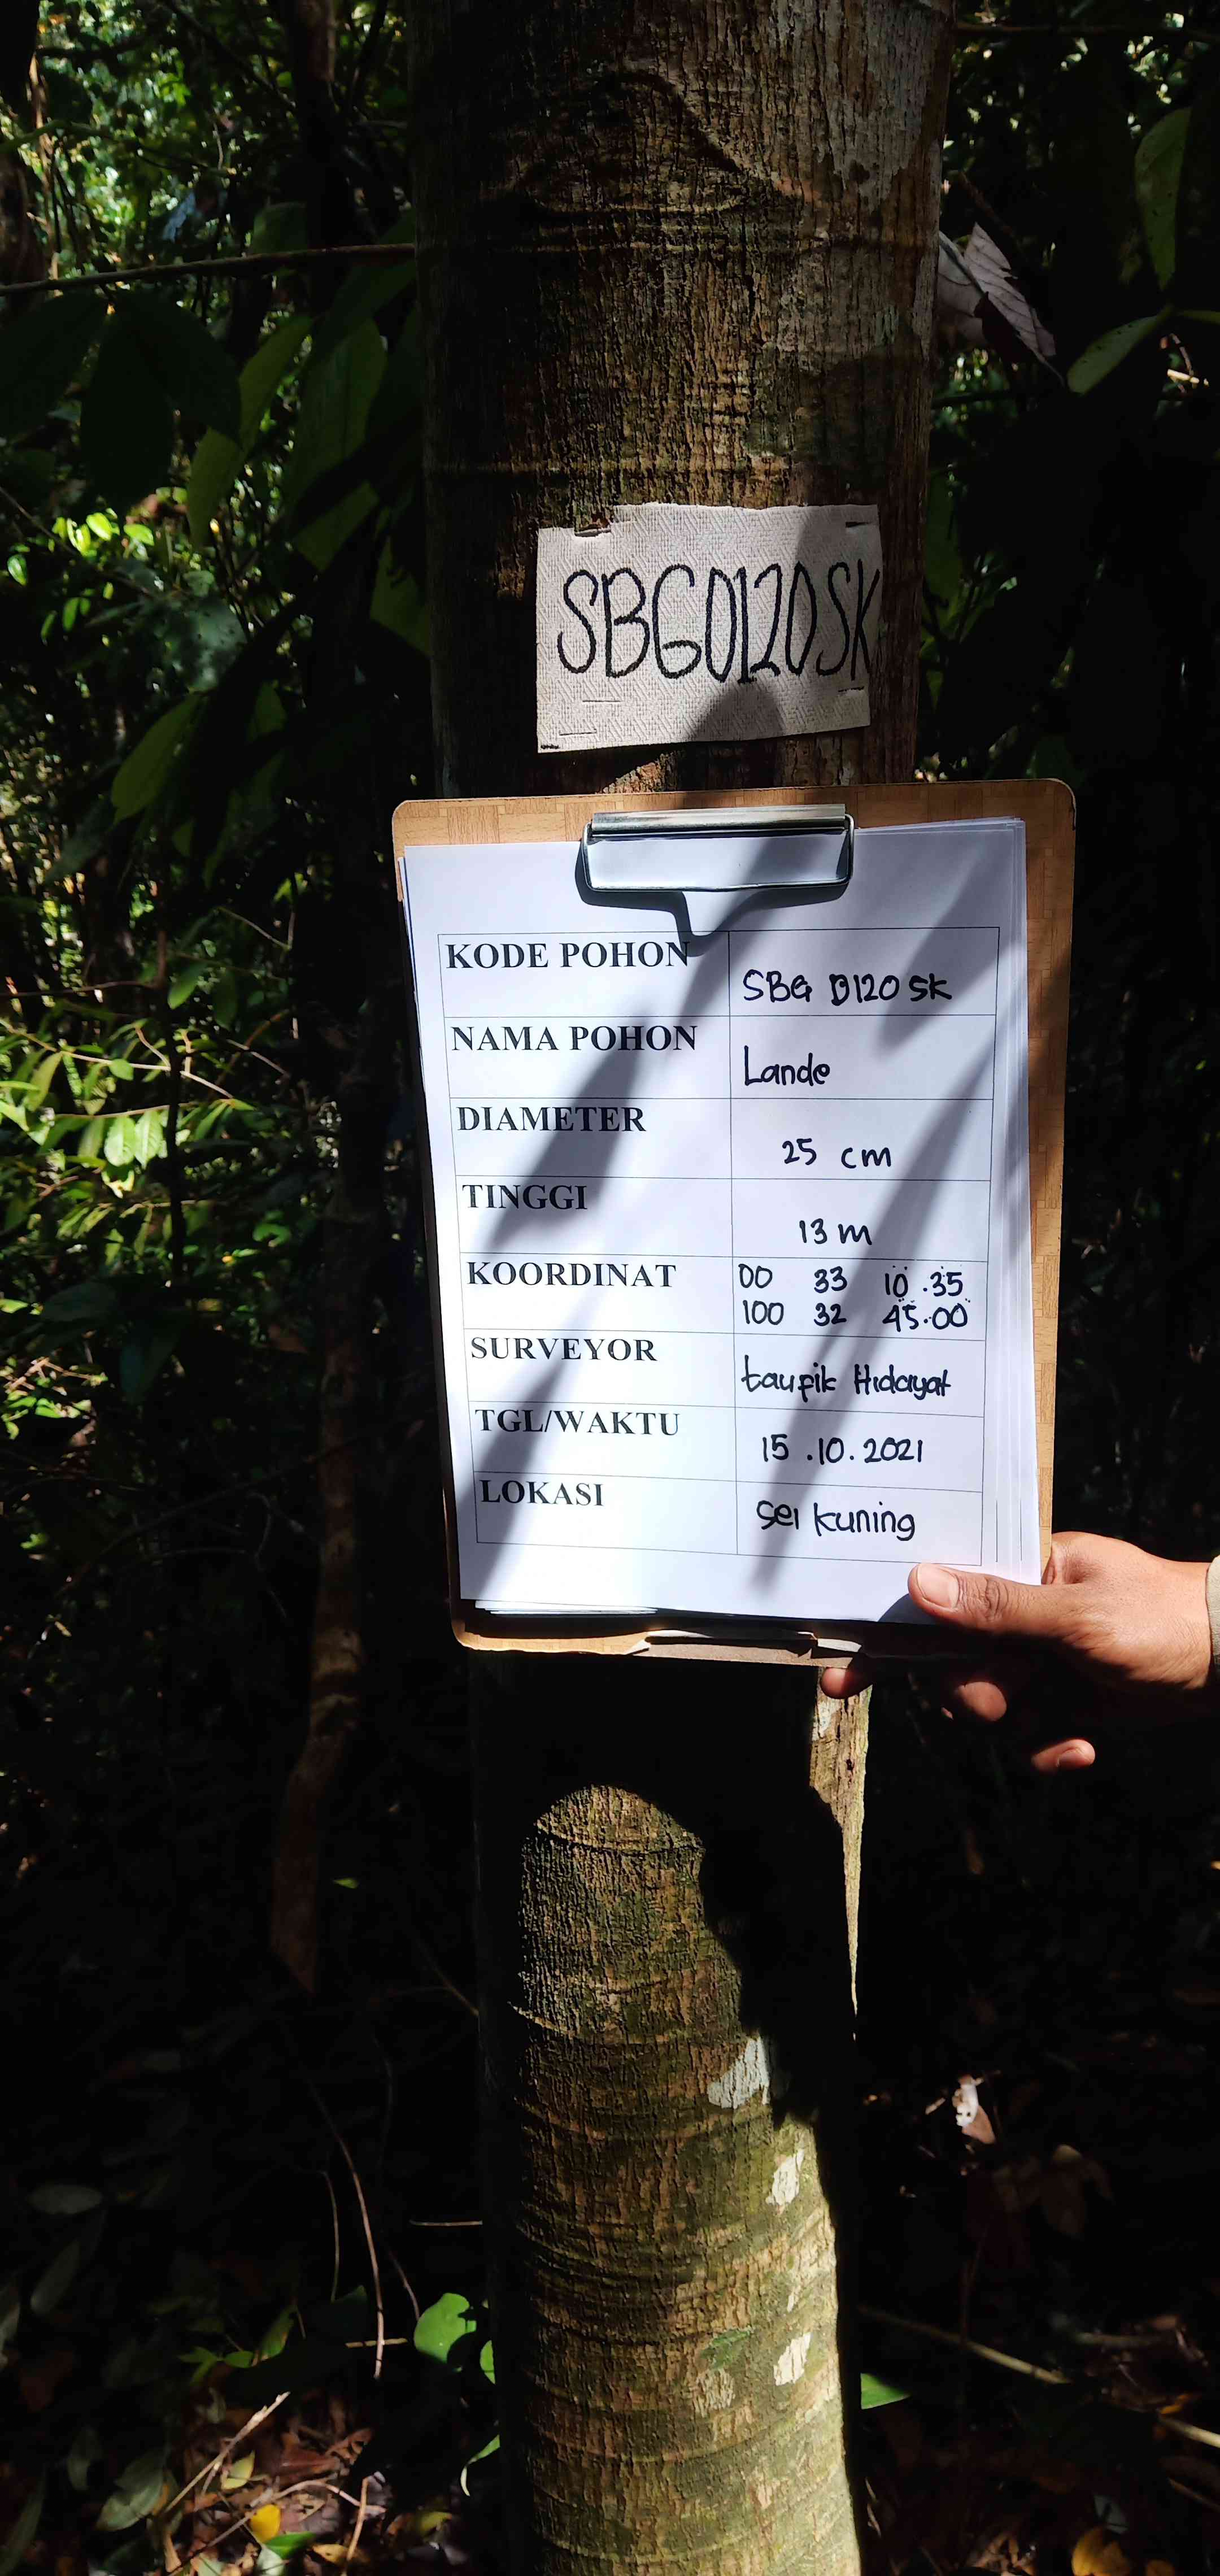 SBG0120SK
KODE POHON SBG 0120 SK
NAMA POHON Lande
DIAMETER 25 cm
TINGGI 13 m
KOORDINAT 00 33 10.35
100 32 45.00
SURVEYOR taupik Hidayat
TGL/WAKTU 15.10.2021
LOKASI Sei kuning